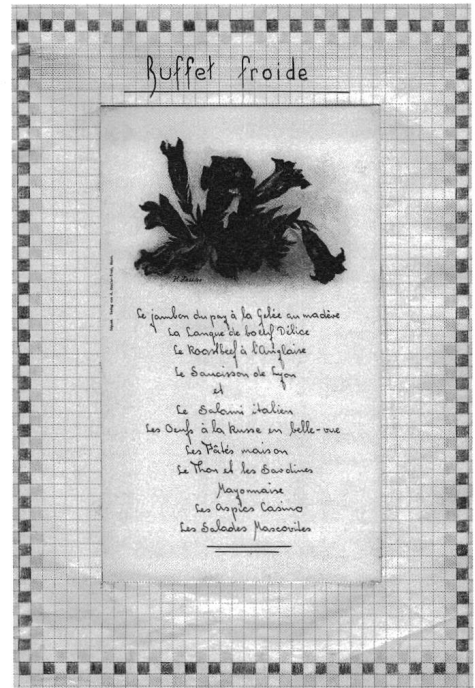 Buffet froide
Le jambon du pay à la Gelée au madère
La Langue de boeuf Délice
Le Roastbeef à l'Anglaise
Le Saucisson de Lyon
et
Le Salami italien
Les Oeufs à la Russe en belle-vue
Les Pâtés maison
Le Thon et les Sardines
Mayonnaise
Les Aspics Casino
Les Salades Mascovites